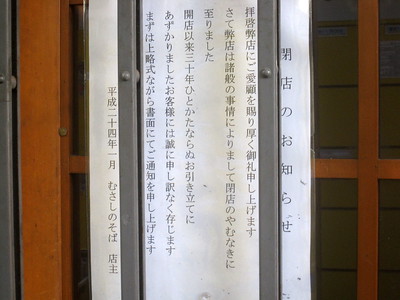 閉店のお知らせ
拝啓弊店にご愛顧を賜り厚く御礼申し上げます
さて弊店は諸般の事情によりまして閉店のやむなきに
至りました
開店以来三十年ひとかたならぬお引き立てに
あずかりましたお客様には誠に申し訳なく存じます
まずは上略式ながら書面にてご通知を申し上げます
平成二十四年一月 むさしのそば 店主